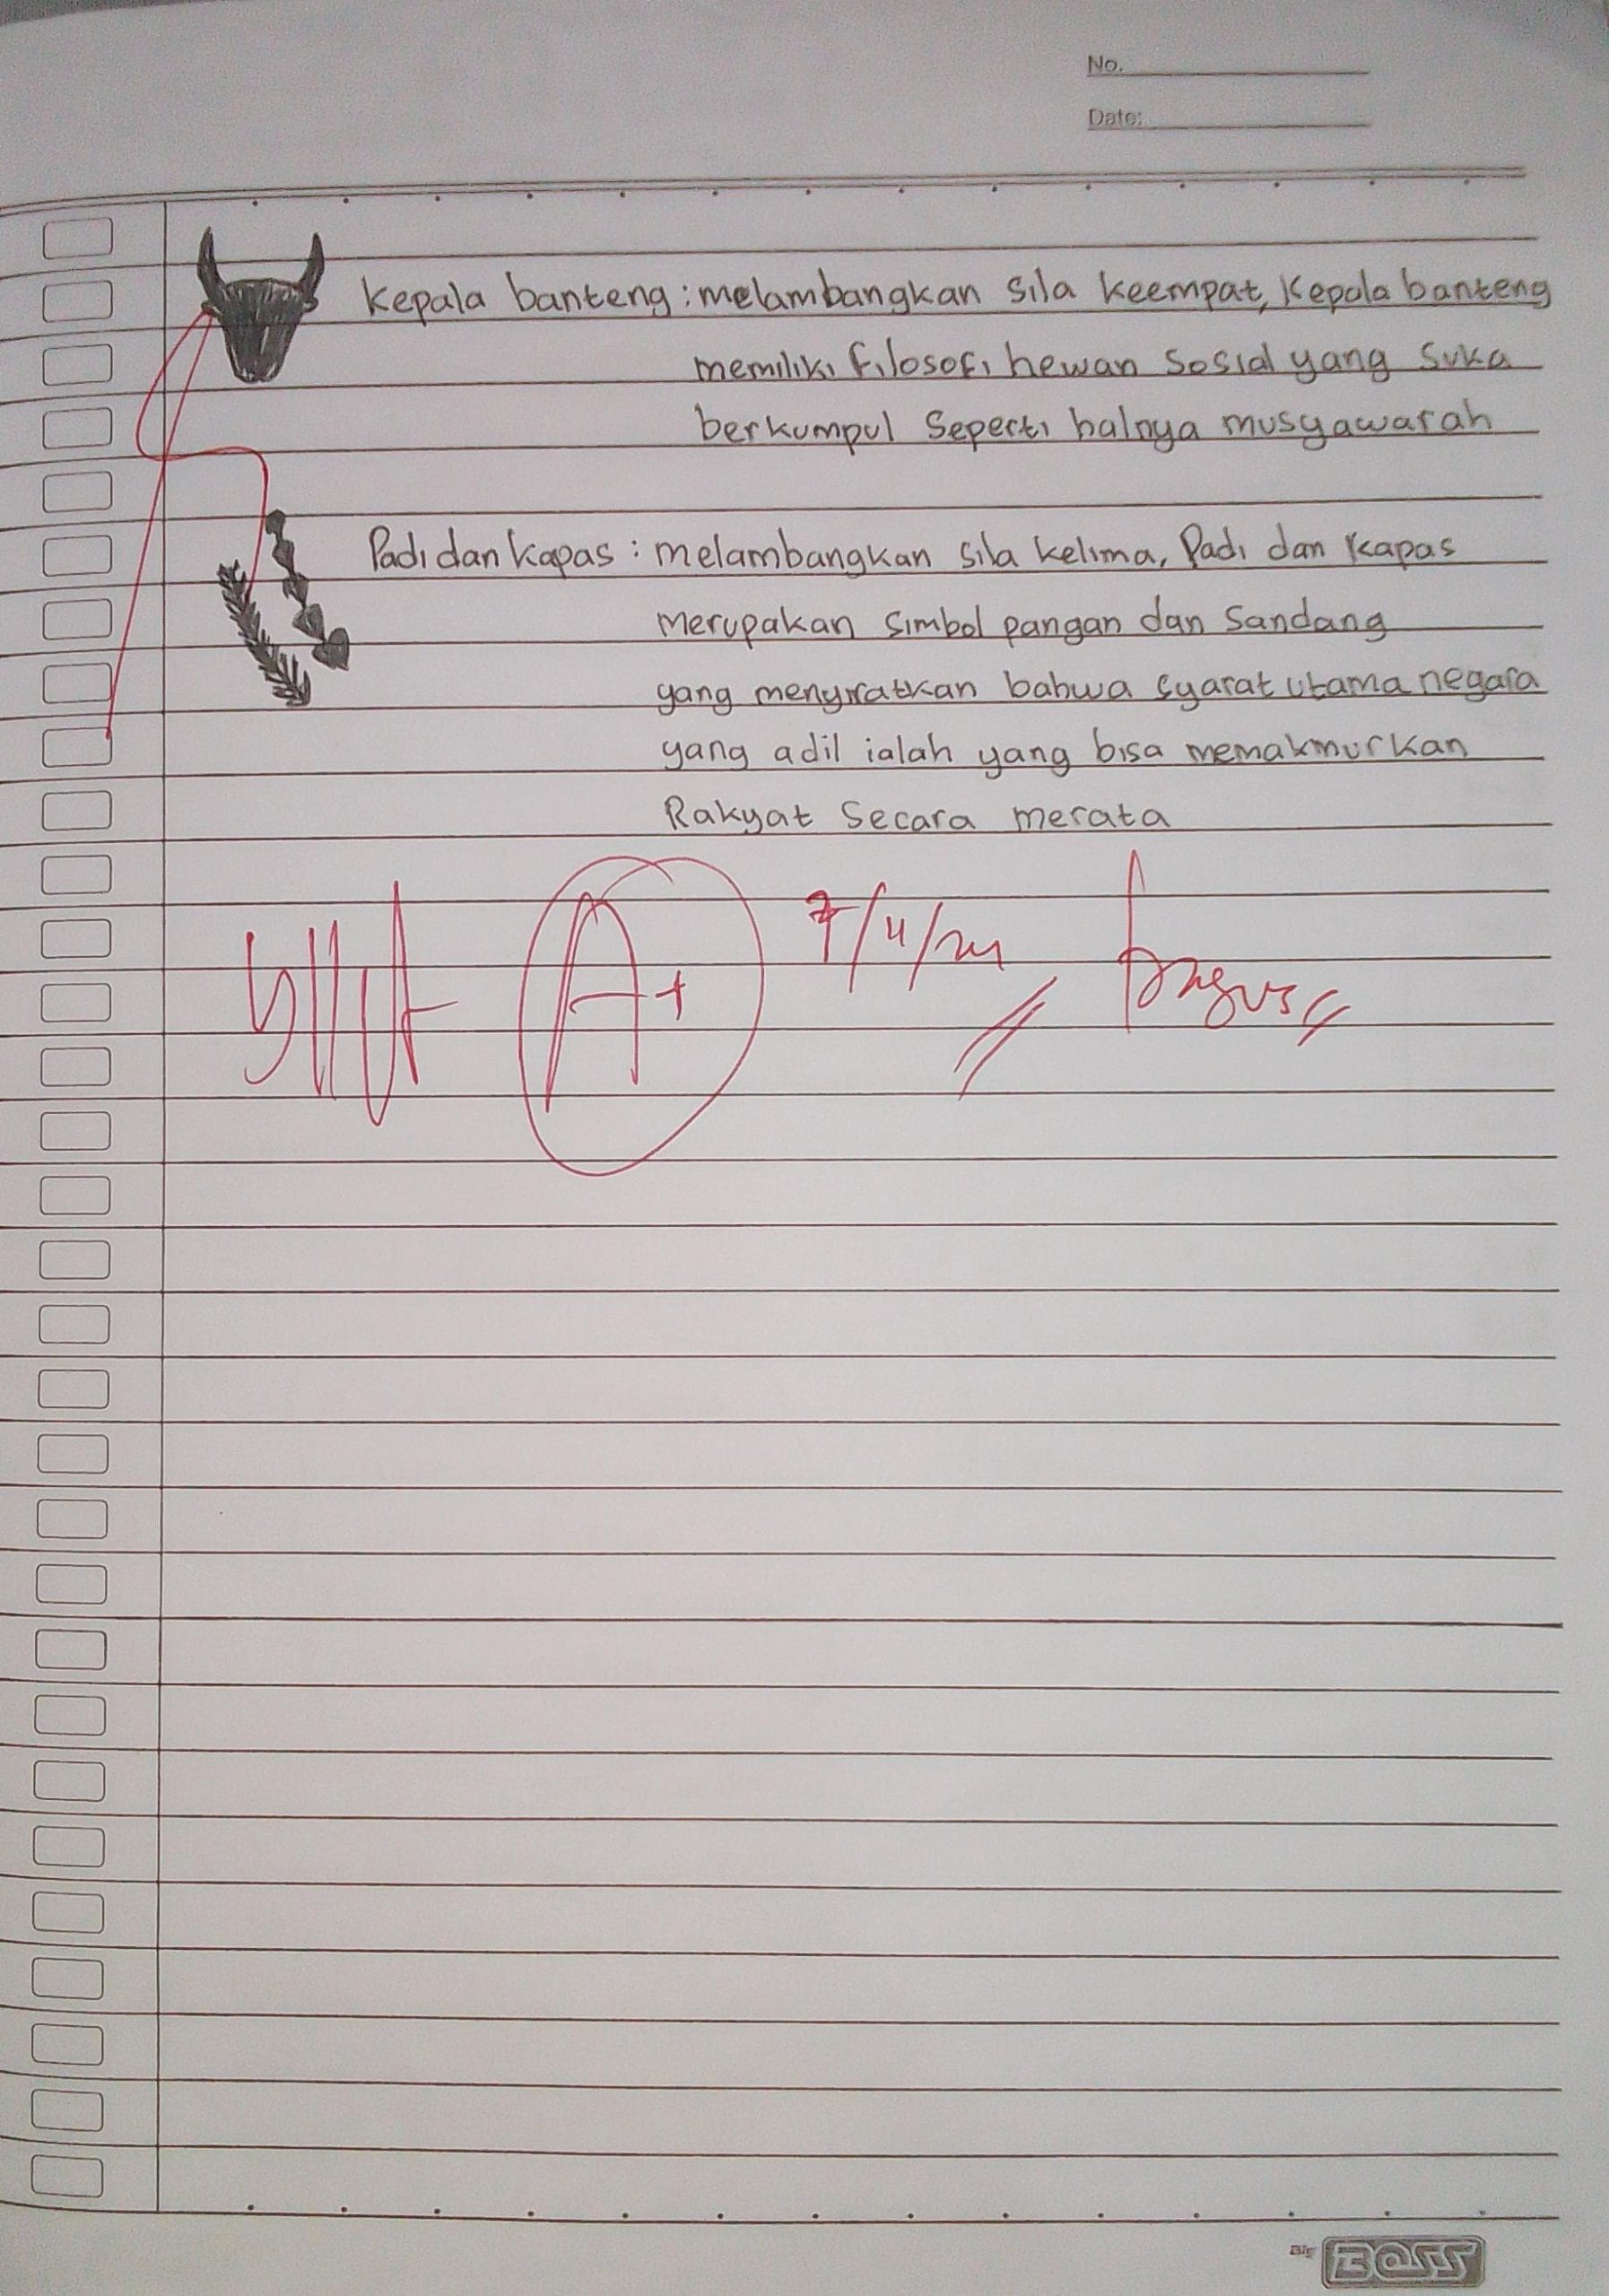 No.
Date:
Kepala banteng : melambangkan sila keempat, Kepala banteng
memiliki filosofi hewan sosial yang suka
berkumpul seperti halnya musyawarah
Padi dan kapas : melambangkan sila kelima, Padi dan kapas
merupakan simbol pangan dan sandang
yang menyiratkan bahwa syarat utama negara
yang adil ialah yang bisa memakmurkan
Rakyat secara merata
A+
Big BOSS